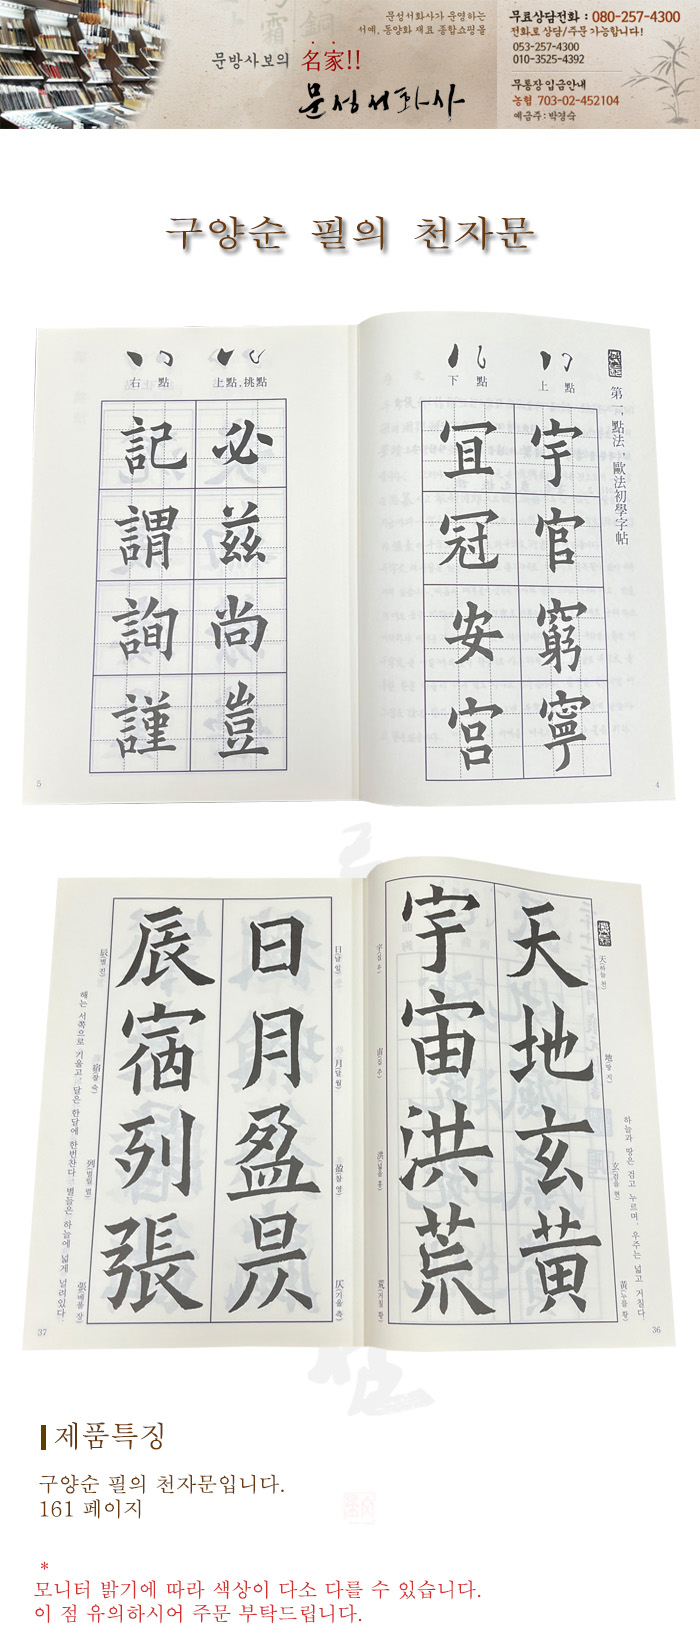 문성서화사가 운영하는
서예, 동양화 재료 종합쇼핑몰
문방사보의 名家!!
문성서화사
무료상담전화 : 080-257-4300
전화로 상담/주문 가능합니다!
053-257-4300
010-3525-4392
무통장 입금안내
농협 703-02-452104
예금주 : 박경숙
구양순 필의 천자문
第一、點法、歐法初學字帖
上 點
宇官窮寧
下 點
宜冠安宮
4
上點,挑點
必玆尚豈
右 點
記謂詢謹
5
하늘과 땅은 검고 누르며, 우주는 넓고 거칠다.
天(하늘 천) 地(땅 지) 玄(검을 현) 黃(누를 황)
天地玄黃
宇宙洪荒
宇(집 우) 宙(집 주) 洪(넓을 홍) 荒(거칠 황)
36
日(날 일) 月(달 월) 盈(찰 영) 仄(기울 측)
日月盈昃
辰宿列張
辰(별 진) 宿(잘 숙) 列(벌릴 렬) 張(베풀 장)
해는 서쪽으로 기울고 달은 한달에 한번찬다. 별들은 하늘에 넓게 널려있다.
37
제품특징
구양순 필의 천자문입니다.
161 페이지
*
모니터 밝기에 따라 색상이 다소 다를 수 있습니다.
이 점 유의하시어 주문 부탁드립니다.